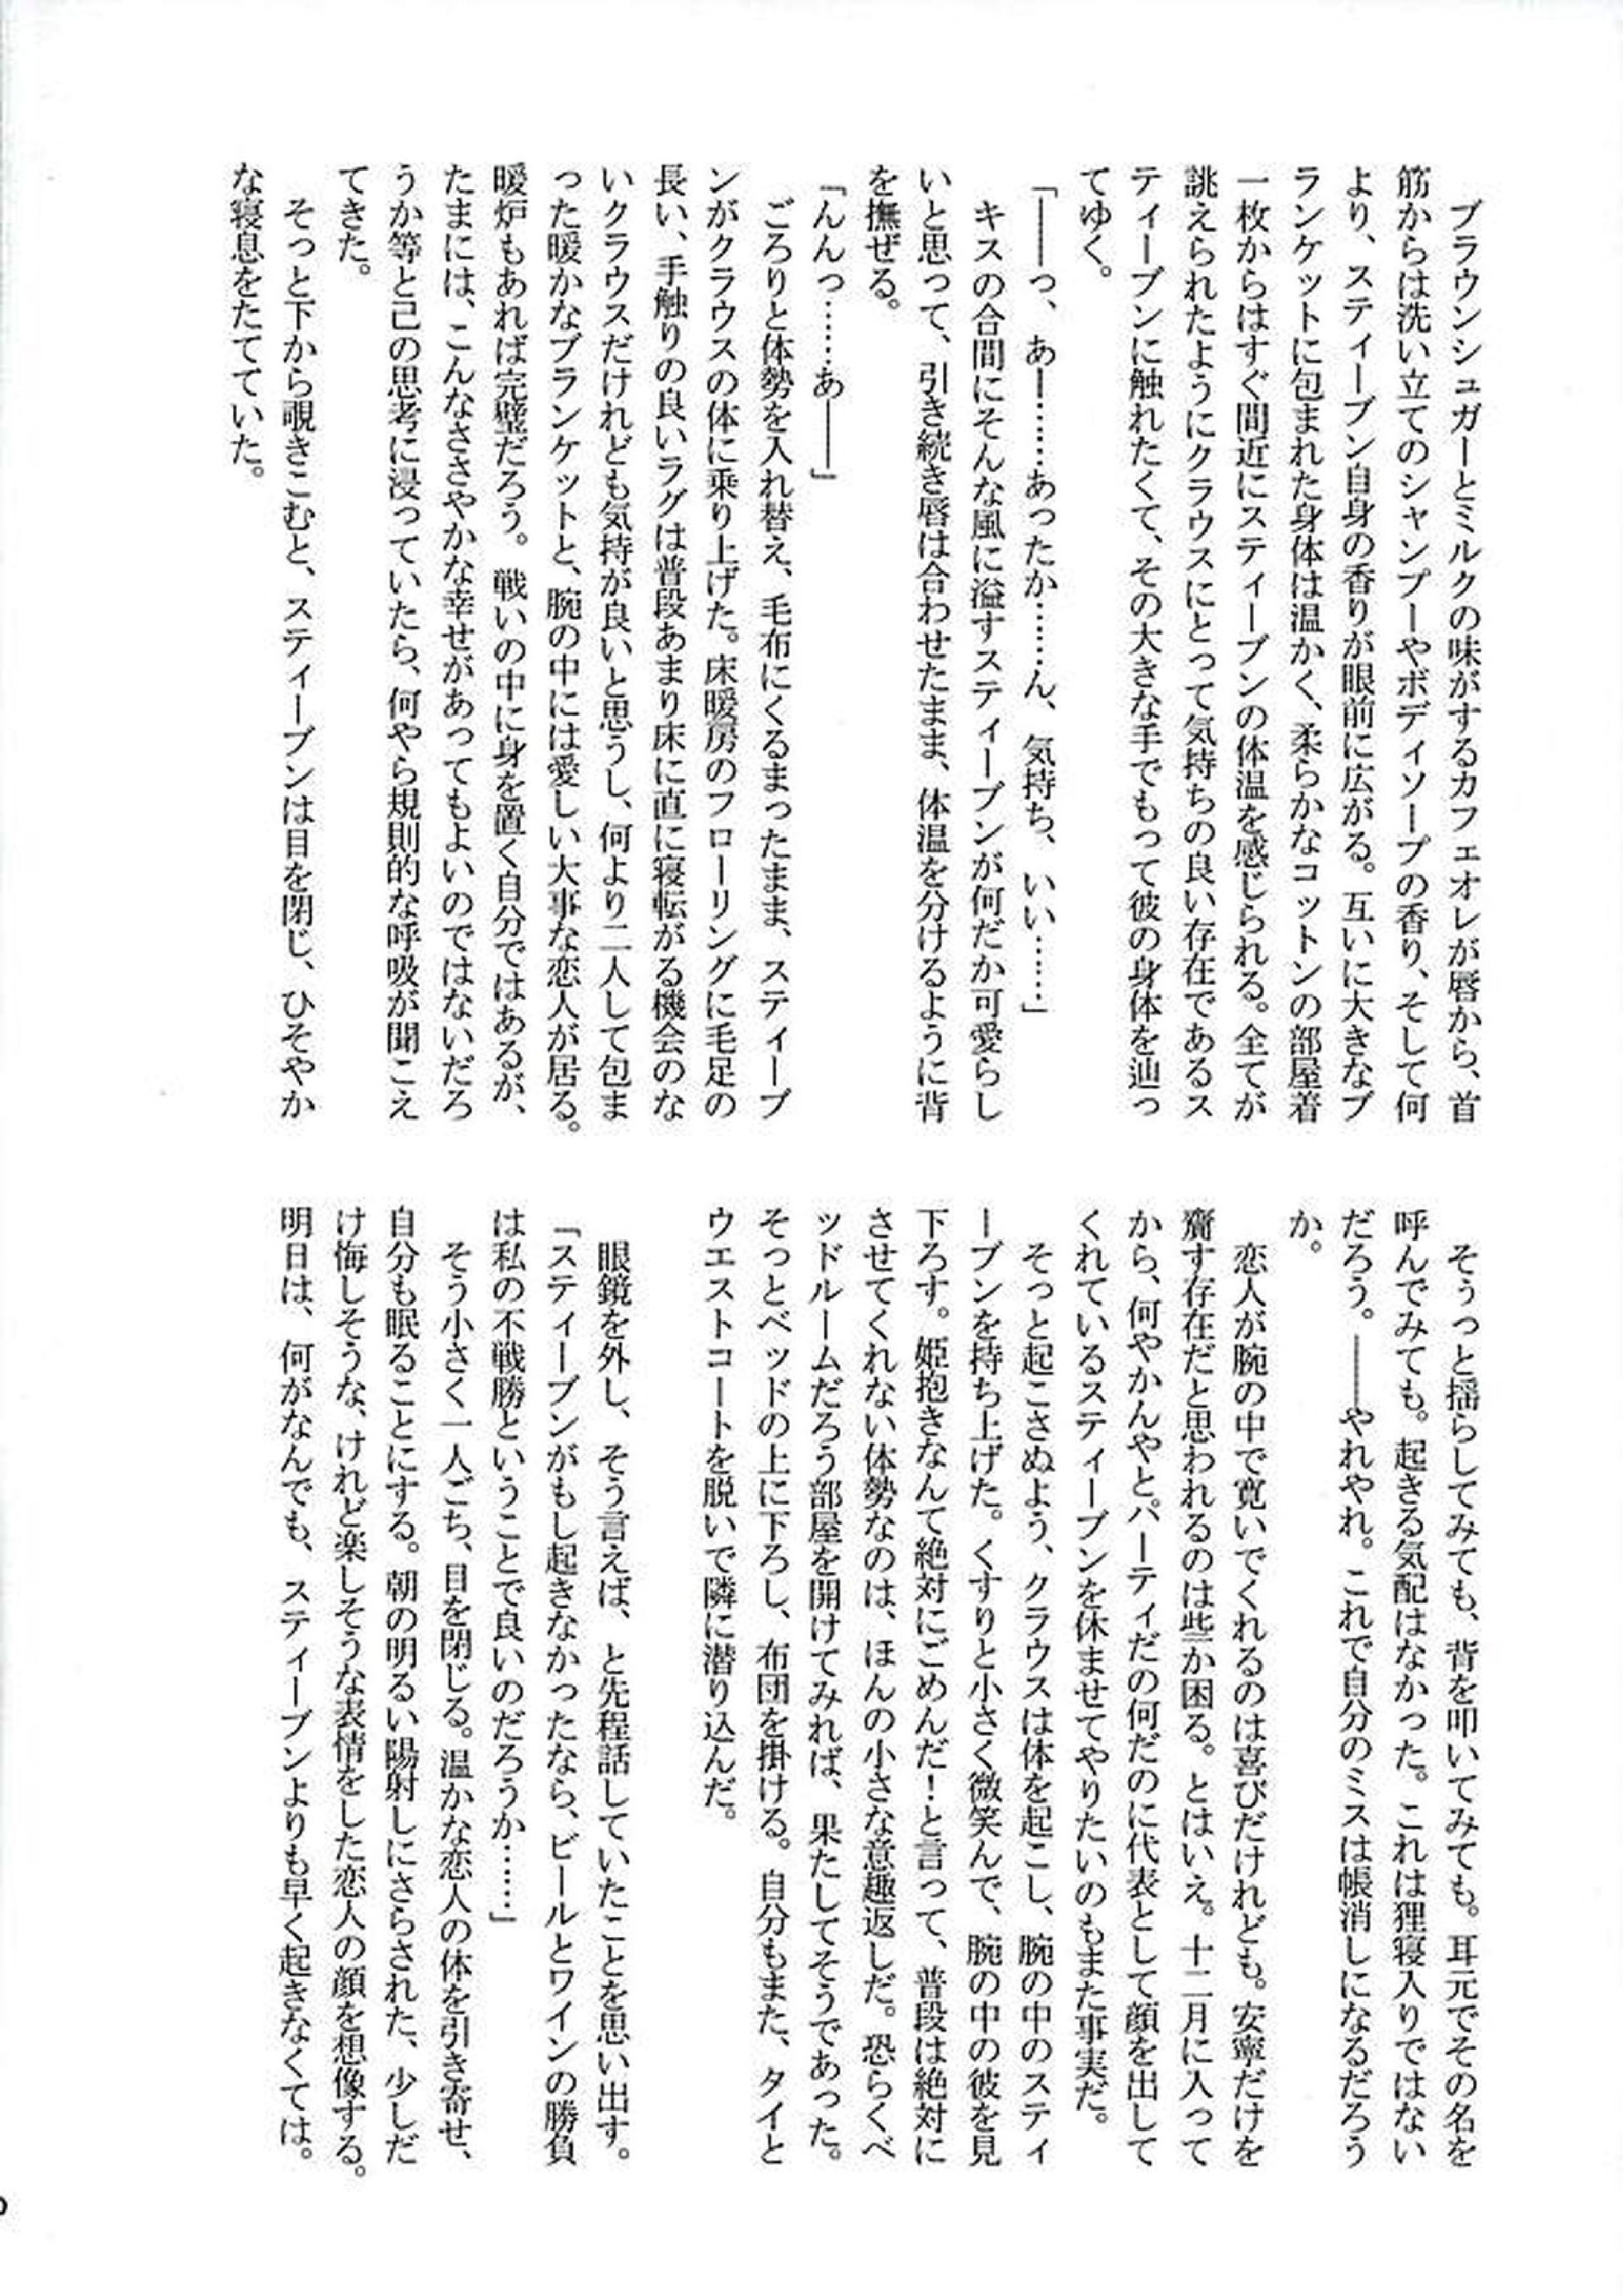 ブラウンシュガーとミルクの味がするカフェオレが唇から、首
筋からは洗い立てのシャンプーやボディソープの香り、そして何
より、スティーブン自身の香りが眼前に広がる。互いに大きなブ
ランケットに包まれた身体は温かく、柔らかなコットンの部屋着
一枚からはすぐ間近にスティーブンの体温を感じられる。全てが
誂えられたようにクラウスにとって気持ちの良い存在であるス
ティーブンに触れたくて、その大きな手でもって彼の身体を辿っ
てゆく。
「――っ、あー……あったか……ん、気持ち、いい……」
キスの合間にそんな風に溢すスティーブンが何だか可愛らし
いと思って、引き続き唇は合わせたまま、体温を分けるように背
を撫ぜる。
「んんっ……あ――」
ごろりと体勢を入れ替え、毛布にくるまったまま、スティーブ
ンがクラウスの体に乗り上げた。床暖房のフローリングに毛足の
長い、手触りの良いラグは普段あまり床に直に寝転がる機会のな
いクラウスだけれども気持が良いと思うし、何より二人して包ま
った暖かなブランケットと、腕の中には愛しい大事な恋人が居る。
暖炉もあれば完璧だろう。戦いの中に身を置く自分ではあるが、
たまには、こんなささやかな幸せがあってもよいのではないだろ
うか等と己の思考に浸っていたら、何やら規則的な呼吸が聞こえ
てきた。
そっと下から覗きこむと、スティーブンは目を閉じ、ひそやか
な寝息をたてていた。
そうっと揺らしてみても、背を叩いてみても。耳元でその名を
呼んでみても。起きる気配はなかった。これは狸寝入りではない
だろう。――やれやれ。これで自分のミスは帳消しになるだろう
か。
恋人が腕の中で寛いでくれるのは喜びだけれども。安寧だけを
齎す存在だと思われるのは些か困る。とはいえ。十二月に入って
から、何やかんやとパーティだの何だのに代表として顔を出して
くれているスティーブンを休ませてやりたいのもまた事実だ。
そっと起こさぬよう、クラウスは体を起こし、腕の中のスティ
ーブンを持ち上げた。くすりと小さく微笑んで、腕の中の彼を見
下ろす。姫抱きなんて絶対にごめんだ！と言って、普段は絶対に
させてくれない体勢なのは、ほんの小さな意趣返しだ。恐らくベ
ッドルームだろう部屋を開けてみれば、果たしてそうであった。
そっとベッドの上に下ろし、布団を掛ける。自分もまた、タイと
ウエストコートを脱いで隣に潜り込んだ。
眼鏡を外し、そう言えば、と先程話していたことを思い出す。
「スティーブンがもし起きなかったなら、ビールとワインの勝負
は私の不戦勝ということで良いのだろうか……」
そう小さく一人ごち、目を閉じる。温かな恋人の体を引き寄せ、
自分も眠ることにする。朝の明るい陽射しにさらされた、少しだ
け悔しそうな、けれど楽しそうな表情をした恋人の顔を想像する。
明日は、何がなんでも、スティーブンよりも早く起きなくては。